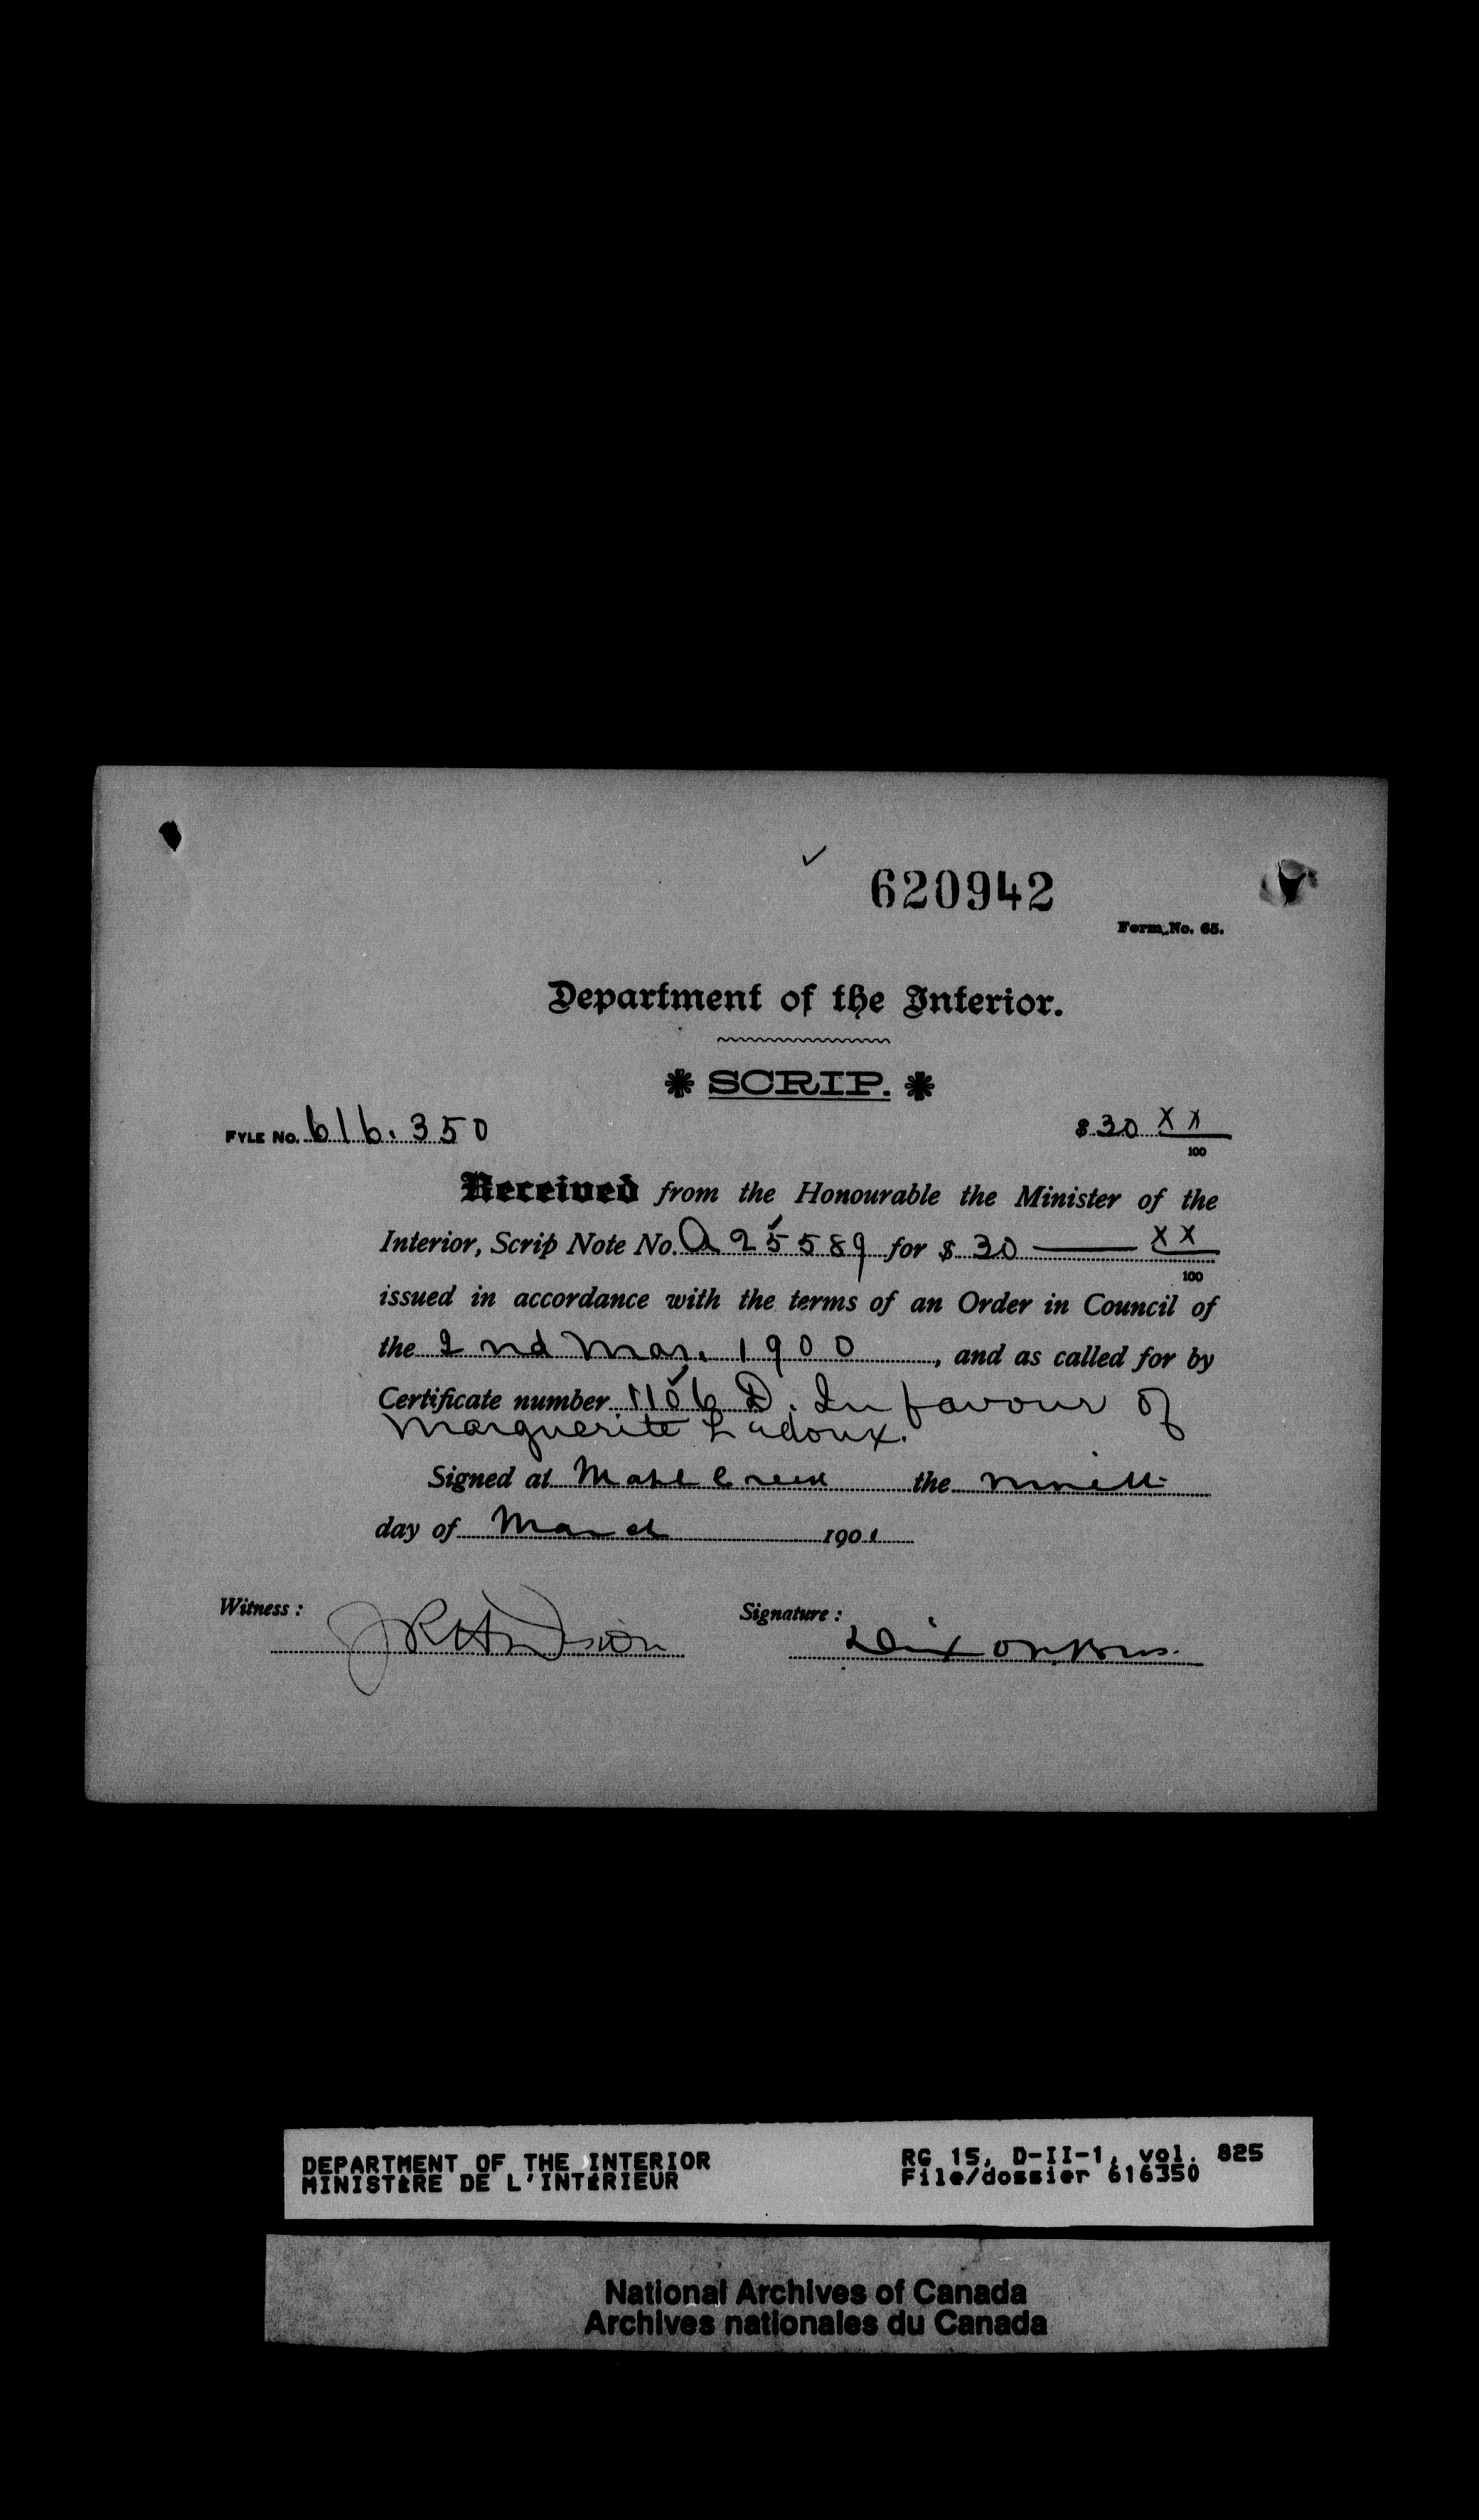 ✓ 620942
Form No. 65.
Department of the Interior.
* SCRIP. *
FYLE NO. 616.350
$ 30 XX/100
Received from the Honourable the Minister of the
Interior, Scrip Note No. A 25589 for $ 30 — XX/100
issued in accordance with the terms of an Order in Council of
the 2nd Mar. 1900, and as called for by
Certificate number 1106 D. In favour of
Marguerite Ladoux.
Signed at Maple Creek the ninth
day of March 1901
Witness :
Signature :
Dixon Bros.
DEPARTMENT OF THE INTERIOR
MINISTÈRE DE L'INTÉRIEUR
RG 15, D-II-1, vol. 825
File/dossier 616350
National Archives of Canada
Archives nationales du Canada